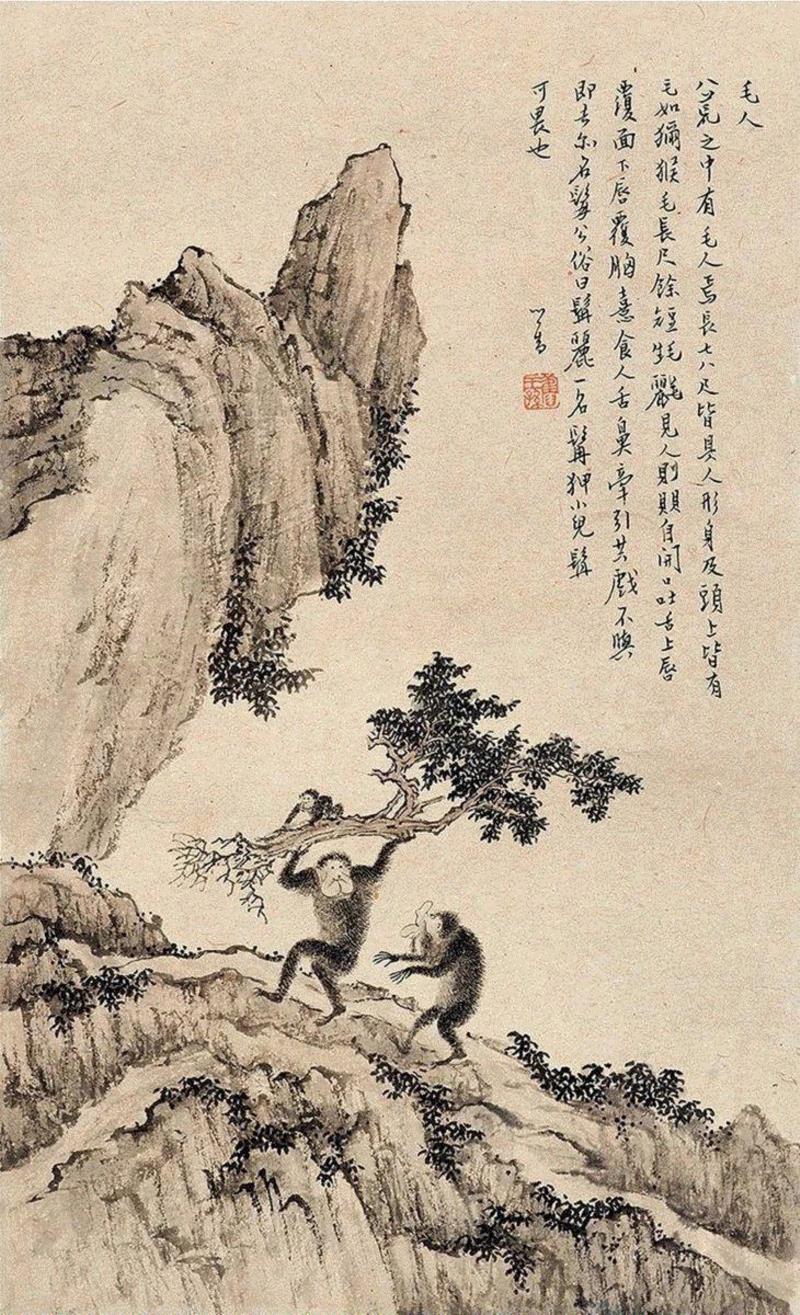 毛人
八荒之中有毛人焉長七八尺皆具人形身及頭上皆有
毛如獼猴毛長尺餘短牦㲚見人則瞑目開口吐舌上唇
覆面下唇覆胸憙食人舌鼻牽引共戲不與
即去尔名髯公俗曰髯麗一名髯狎小兒髯
可畏也
心畬